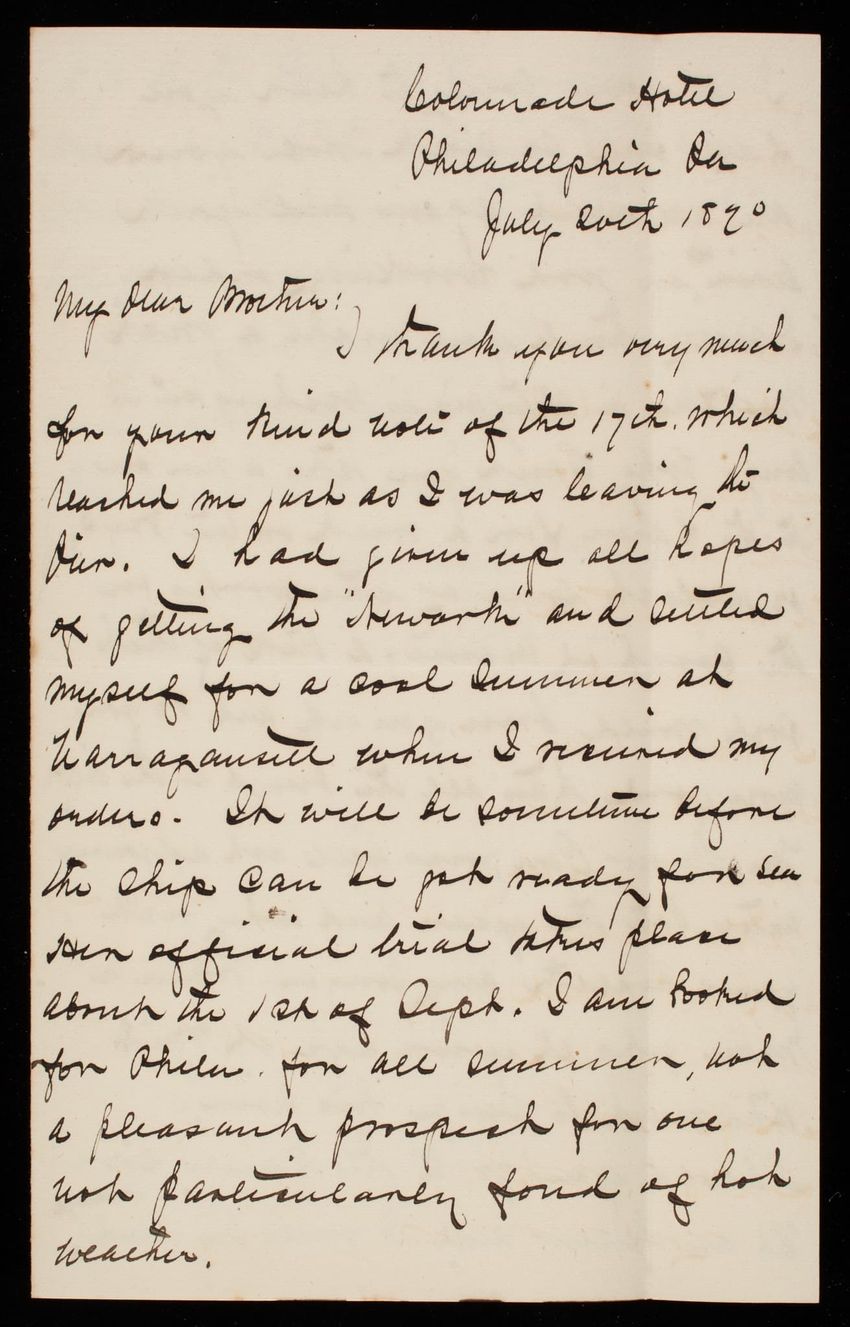 Colonnade Hotel
Philadelphia Pa
July 20th 1890
My dear Brother:
I thank you very much
for your kind note of the 17th. which
reached me just as I was leaving the
Pier. I had given up all hopes
of getting the "Newark" and settled
myself for a cool summer at
Narragansett when I received my
orders. It will be sometime before
the ship can be got ready for sea
Her official trial takes place
about the 1st of Sept. I am booked
for Phila. for all summer, not
a pleasant prospect for one
not particularly fond of hot
weather.